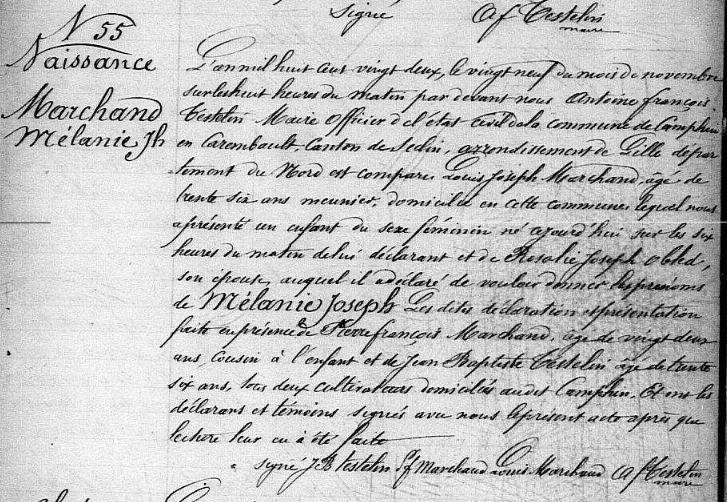 Signé A f Testelin
maire
N 55
Naissance
Marchand
Mélanie Jh
L'an mil huit cent vingt deux, le vingt neuf du mois de novembre
sur les huit heures du matin par devant nous Antoine françois
Testelin Maire Officier d l'état civil de la commune de Camphin
en Carembault, Canton de Seclin, arrondissement de Lille dépar
tement du Nord est comparu Louis Joseph Marchand, agé de
trente six ans meunier, domicilié en cette commune lequel nous
a présenté un enfant du sexe féminin né ajourd'hui sur les six
heures du matin de lui déclarant et de Rosalie Joseph Obled,
son épouse, auquel il a déclaré de vouloir donner les prénoms
de Mélanie Joseph Les dites déclaration et présentation
faite en présence de Pierre françois Marchand, age de vingt deux
ans, Cousin à l'enfant et de Jean Baptiste Testelin âge de trente
six ans, tous deux cultivateurs domiciliés audit Camphin. Et ont les
déclarans et témoins signés avec nous le présent acte après que
lecture leur en à été faite
signé J B Testelin P f Marchand Louis Marchand A f Testelin
maire